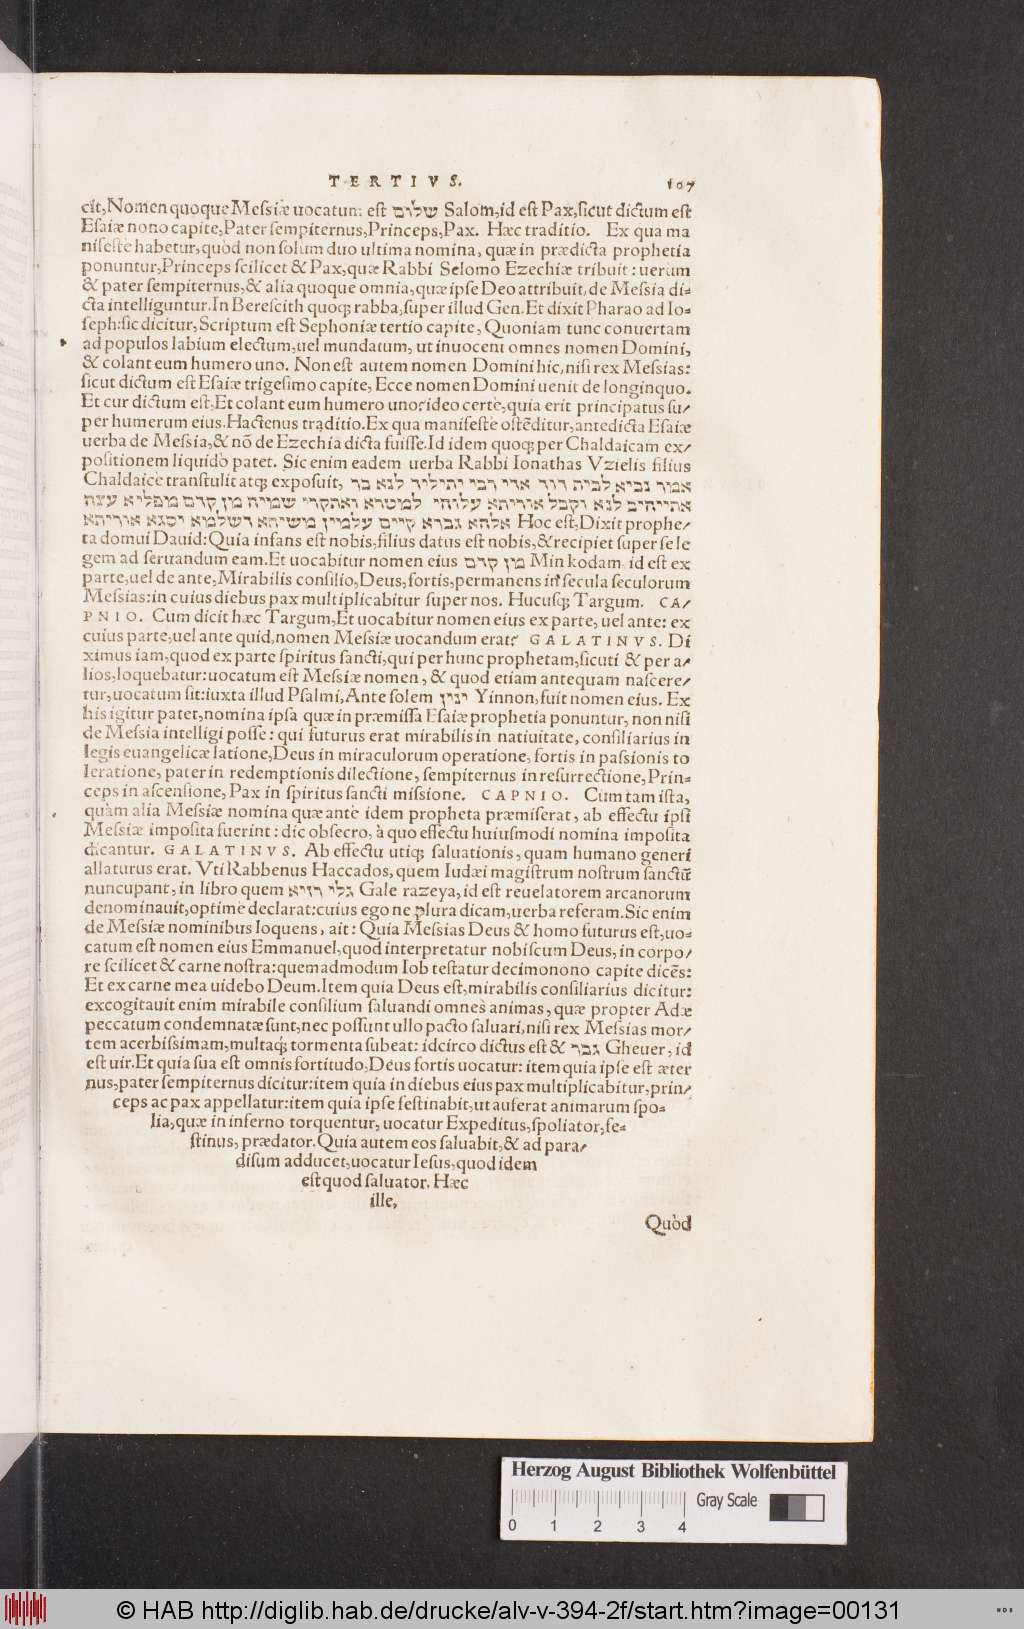 TERTIVS. 107
cit, Nomen quoque Messiæ uocatum est שלום Salom, id est Pax, sicut dictum est
Esaiæ nono capite, Pater sempiternus, Princeps, Pax. Hæc traditio. Ex qua ma
nifeste habetur, quòd non solum duo ultima nomina, quæ in prædicta prophetia
ponuntur, Princeps scilicet & Pax, quæ Rabbi Selomo Ezechiæ tribuit: uerum
& pater sempiternus, & alia quoque omnia, quæ ipse Deo attribuit, de Messia di-
cta intelliguntur. In Berescith quoq; rabba, super illud Gen. Et dixit Pharao ad Io-
seph: sic dicitur, Scriptum est Sephoniæ tertio capite, Quoniam tunc conuertam
ad populos labium electum, uel mundatum, ut inuocent omnes nomen Domini,
& colant eum humero uno. Non est autem nomen Domini hic, nisi rex Messias:
sicut dictum est Esaiæ trigesimo capite, Ecce nomen Domini uenit de longinquo.
Et cur dictum est, Et colant eum humero uno: ideo certè, quia erit principatus su-
per humerum eius. Hactenus traditio. Ex qua manifestè ostẽditur, antedicta Esaiæ
uerba de Messia, & nõ de Ezechia dicta fuisse. Id idem quoq; per Chaldaicam ex-
positionem liquido patet. Sic enim eadem uerba Rabbi Ionathas Vzielis filius
Chaldaicè transtulit atq; exposuit, אמור נביא לבית דוד ארי רבי יתיליד לנא בר
אתייהיב לנא וקבל אוריתא עלוהי למטרא ואתקרי שמיה מן קדם מפליא עצה
אלהא גברא קיים עלמיין משיחא דשלמא יסגא אוריתא Hoc est, Dixit prophe-
ta domui Dauid: Quia infans est nobis, filius datus est nobis, & recipiet super se le
gem ad seruandum eam. Et uocabitur nomen eius מן קדם Min kodam, id est ex
parte, uel de ante, Mirabilis consilio, Deus, fortis, permanens in secula seculorum
Messias: in cuius diebus pax multiplicabitur super nos. Hucusq; Targum. CA-
PNIO. Cum dicit hæc Targum, Et uocabitur nomen eius ex parte, uel ante: ex
cuius parte, uel ante quid, nomen Messiæ uocandum erat? GALATINVS. Di
ximus iam, quod ex parte spiritus sancti, qui per hunc prophetam, sicuti & per a-
lios, loquebatur: uocatum est Messiæ nomen, & quod etiam antequam nascere-
tur, uocatum sit: iuxta illud Psalmi, Ante solem ינין Yinnon, fuit nomen eius. Ex
his igitur patet, nomina ipsa quæ in præmissa Esaiæ prophetia ponuntur, non nisi
de Messia intelligi posse: qui futurus erat mirabilis in natiuitate, consiliarius in
legis euangelicæ latione, Deus in miraculorum operatione, fortis in passionis to
leratione, pater in redemptionis dilectione, sempiternus in resurrectione, Prin-
ceps in ascensione, Pax in spiritus sancti missione. CAPNIO. Cum tam ista,
quàm alia Messiæ nomina quæ ante idem propheta præmiserat, ab effectu ipsi
Messiæ imposita fuerint: dic obsecro, à quo effectu huiusmodi nomina imposita
dicantur. GALATINVS. Ab effectu utiq; saluationis, quam humano generi
allaturus erat. Vti Rabbenus Haccados, quem Iudæi magistrum nostrum sanctũ
nuncupant, in libro quem גלי רזיא Gale razeya, id est reuelatorem arcanorum
denominauit, optimè declarat: cuius ego ne plura dicam, uerba referam. Sic enim
de Messiæ nominibus loquens, ait: Quia Messias Deus & homo futurus est, uo-
catum est nomen eius Emmanuel, quod interpretatur nobiscum Deus, in corpo-
re scilicet & carne nostra: quemadmodum Iob testatur decimonono capite dicẽs:
Et ex carne mea uidebo Deum. Item quia Deus est, mirabilis consiliarius dicitur:
excogitauit enim mirabile consilium saluandi omnes animas, quæ propter Adæ
peccatum condemnatæ sunt, nec possunt ullo pacto saluari, nisi rex Messias mor-
tem acerbissimam, multaq; tormenta subeat: idcirco dictus est & גבר Gheuer, id
est uir. Et quia sua est omnis fortitudo, Deus fortis uocatur: item quia ipse est æter
nus, pater sempiternus dicitur: item quia in diebus eius pax multiplicabitur, prin-
ceps ac pax appellatur: item quia ipse festinabit, ut auferat animarum spo-
lia, quæ in inferno torquentur, uocatur Expeditus, spoliator, fe-
stinus, prædator. Quia autem eos saluabit, & ad para-
disum adducet, uocatur Iesus, quod idem
est quod saluator. Hæc
ille,
Quòd
Herzog August Bibliothek Wolfenbüttel
Gray Scale
0 1 2 3 4
© HAB http://diglib.hab.de/drucke/alv-v-394-2f/start.htm?image=00131